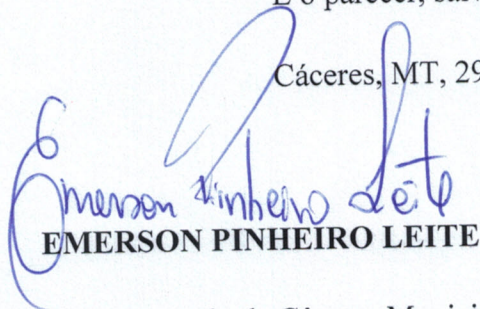 É o parecer, sal
Cáceres, MT, 29
Emerson Pinheiro Leite
EMERSON PINHEIRO LEITE